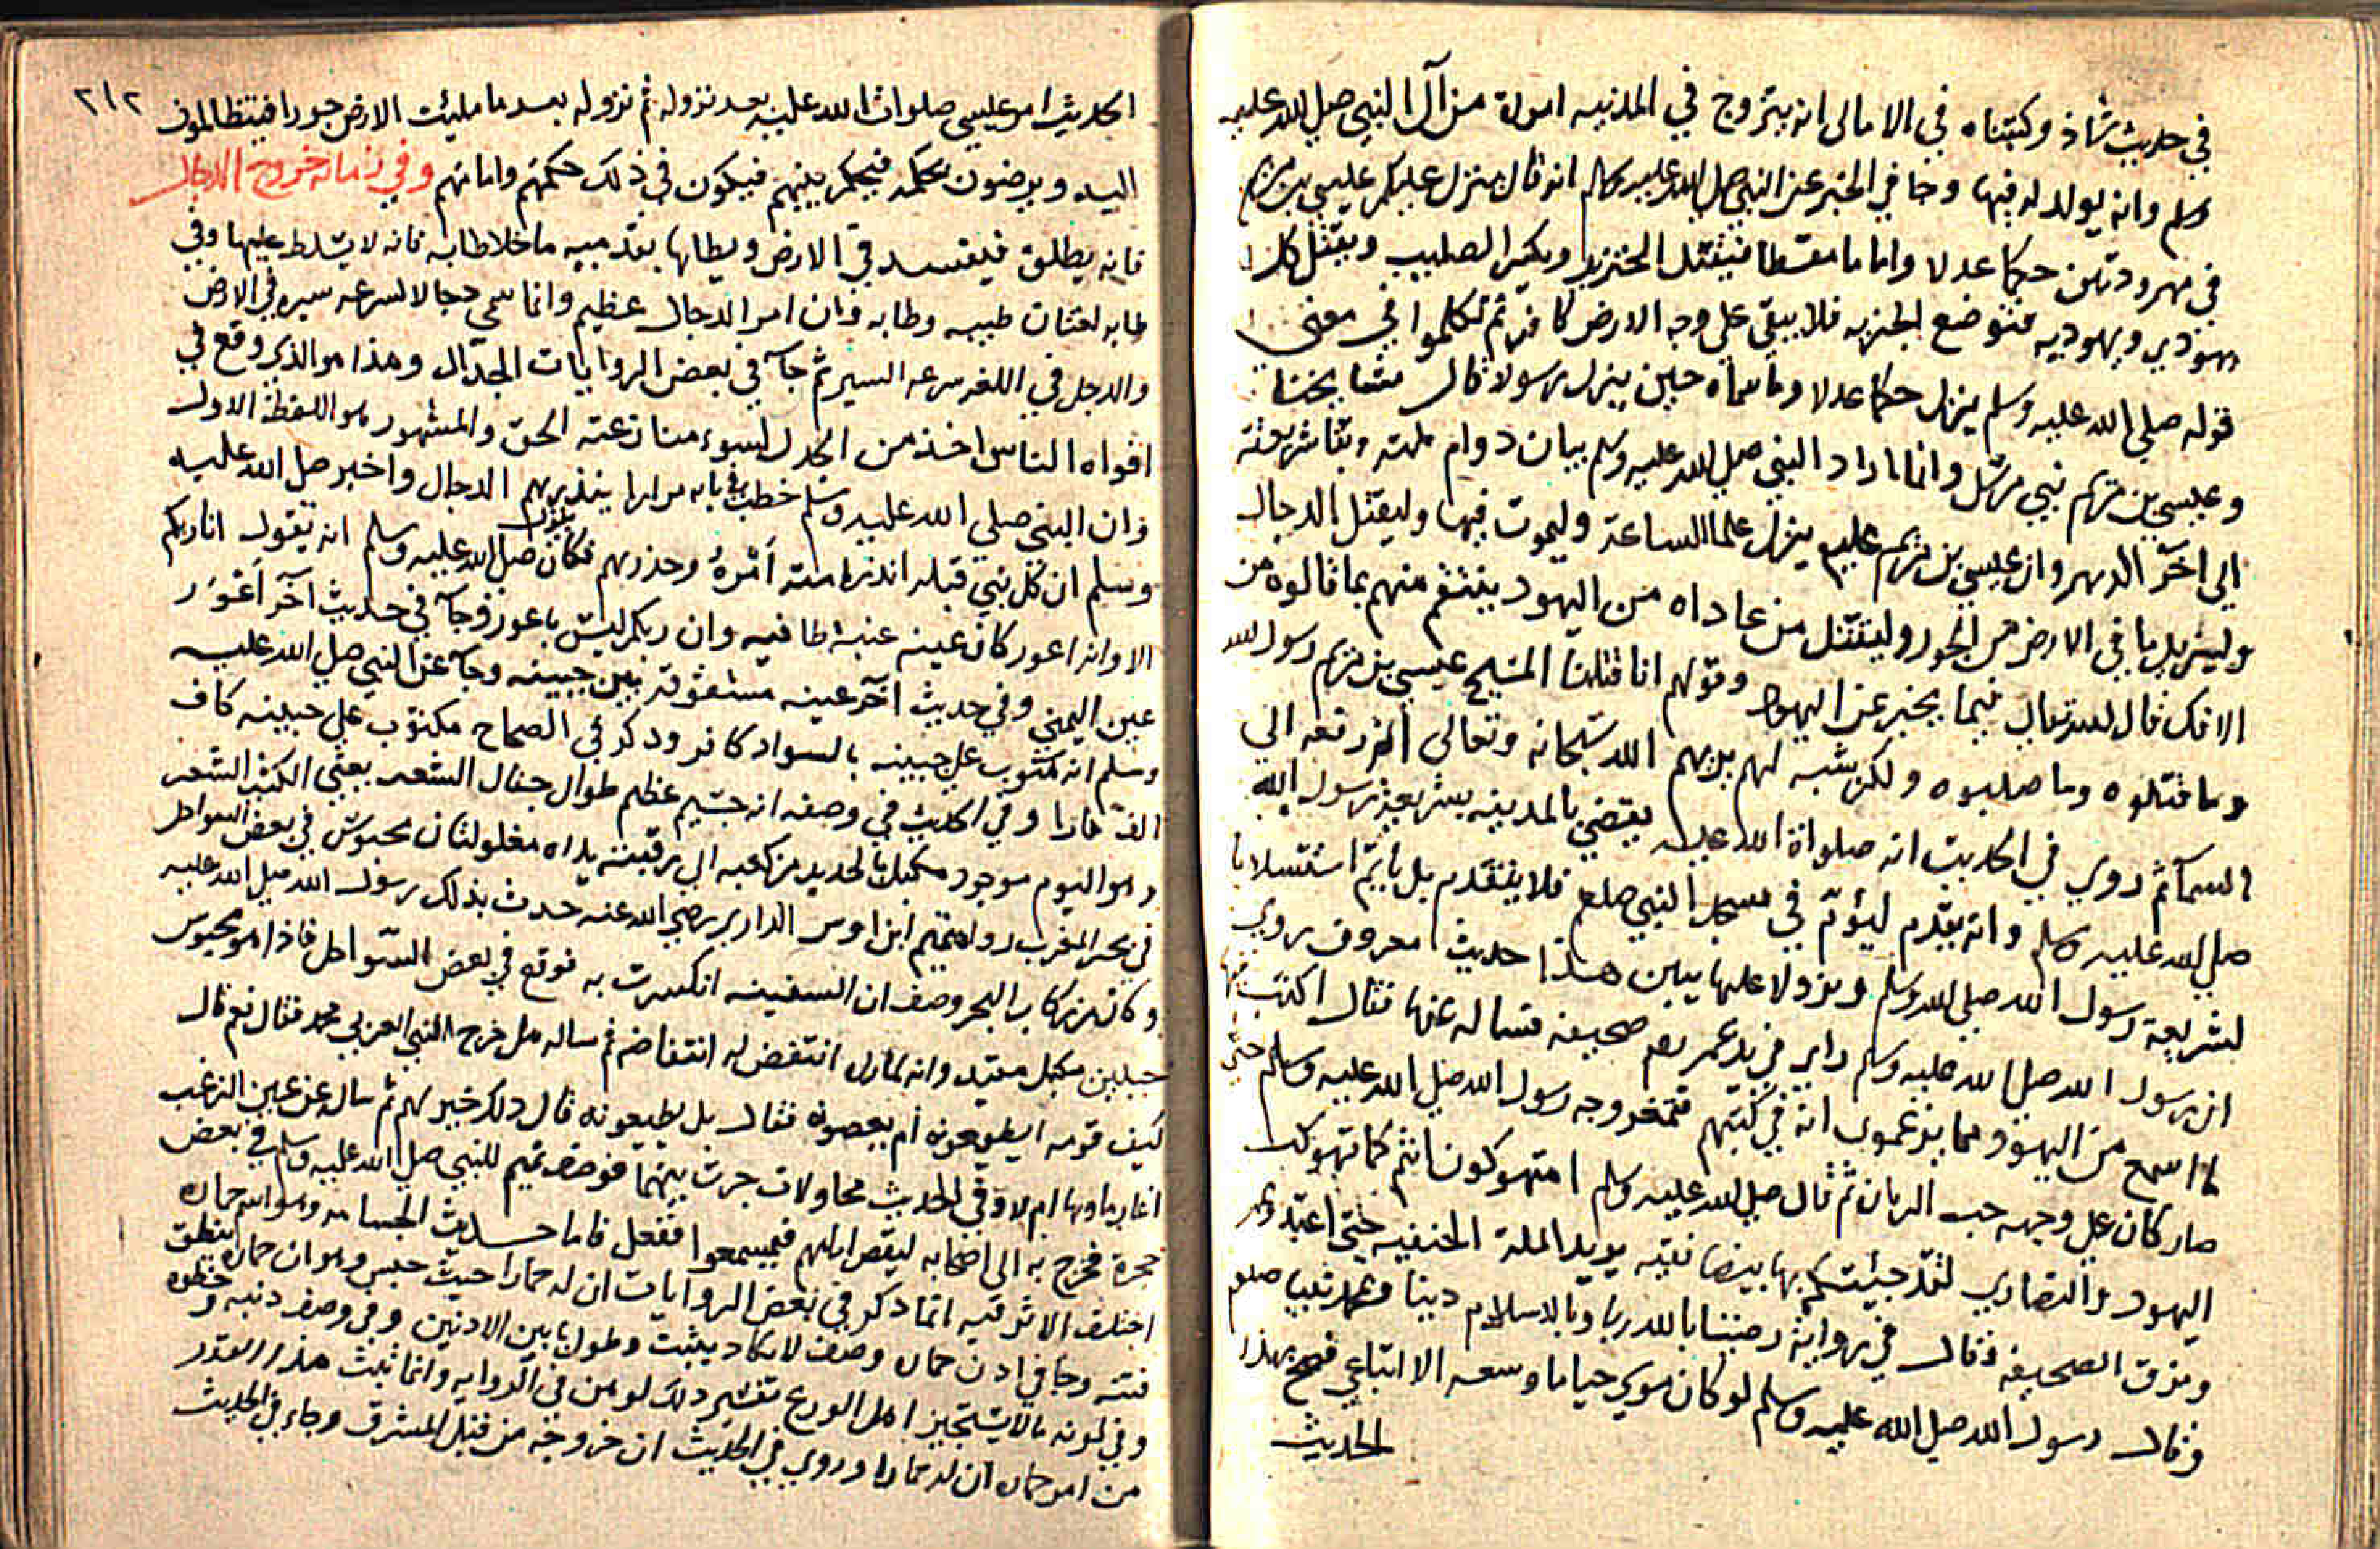 في حديث شاذ وكتبناه في الامالى انه يتزوج في المدنيه امراة من آل النبي صلي الله عليه
وسلم وانه يولد له فيها وجا في الخبر عن النبي صلي الله عليه وسلم انه قال ينزل عليكم عيسي بن مريم
في مهرودتين حكما عدلا واماما مقسطا فيقتل الخنزير ويكسر الصليب ويقتل كل
يهودي ويهوديه فتوضع الجزيه فلا يبقى على وجه الارض كافر ثم تكلموا في معنى
قوله صلي الله عليه وسلم ينزل حكما عدلا وما سماه حين ينزل رسولا قال
وعيسي بن مريم نبي مرسل وانما اراد النبي صلي الله عليه وسلم بيان دوام ملته وبقا شريعته
الي آخر الدهر وان عيسي بن مريم عليه ينزل علما للساعة وليموت فيها وليقتل الدجال
وليزيل ما في الارض من الجور وليقتل من عاداه من اليهود ينتقم منهم بما قالوه من
الافك قال الله تعالي فيما يخبر عن اليهود وقولهم انا قتلنا المسيح عيسي بن مريم رسول الله
وما قتلوه وما صلبوه ولكن شبه لهم يريهم الله سبحانه وتعالى الذي رفعه الي
السمآ ثم روي في الحديث انه صلواة الله عليه يقضي بالمدينه بشريعة رسول الله
صلي الله عليه وسلم وانه يقدم ليؤم في مسجد النبي صلعم فلا يتقدم بل ياتم استسلاما
لشريعة رسول الله صلي الله وسلم ونزولا عليها يبين هذا حديث معروف روي
ان رسول الله صلي الله عليه وسلم راي في يد عمر صحيفه فساله عنها فقال اكتب فيها
ما اسمع من اليهود مما يزعمون انه في كتبهم فتمغر وجه رسول الله صلي الله عليه وسلم حتي
صار كان علي وجهه حب الرمان ثم قال صلي الله عليه وسلم امتهوكون انتم كما تهوكت
اليهود والنصاري لقد جيئتكم بها بيضا نقيه يريد الملة الحنفيه حتي اعتذر عمر
ومزق الصحيفه وقال في رواية رضينا بالله ربا وبالاسلام دينا ومحمد نبيا صلعم
وقال رسول الله صلي الله عليه وسلم لو كان موسي حيا ما وسعه الا اتباعي فصح بهذا
الحديث
٢١٢
الحديث امر عيسي صلوات الله عليه بعد نزوله ثم نزوله بعد ما مليئت الارض جورا فينتظ الموف
اليه ويرضون بحكمه فيحكم بينهم فيكون في ذلك حكمهم وامامهم وفي زمانه خروج الدجال
فانه يطلق فيفسد في الارض ويطاها بقدميه ما خلا طابه فانه لا يسلط عليها وفي
طابه لغتان طيبه وطابه وان امر الدجال عظيم وانما سمي دجالا لسرعه سيره في الارض
والدجل في اللغه سرعه السير ثم جآ في بعض الروايات الجدال وهذا هو الذي وقع في
افواه الناس اخذ من الجدل لسوء منازعته الحق والمشهور هو اللفظة الاول
وان النبي صلي الله عليه وسلم خطب مرارا ينذرهم الدجال واخبر صلي الله عليه
وسلم ان كل نبي قبله انذر امته امره وحذرهم فكان صلي الله عليه وسلم انه يقول انا ربكم
الا وانه اعور كان عينه عنبة طافيه وان ربكم ليس باعور وجآ في حديث آخر اعور
عين اليمني وفي حديث آخر عينه مشقوقه بين جبينه وجآ عن النبي صلي الله عليه
وسلم انه مكتوب علي جبينه بالسواد كافر وذكر في الصحاح مكتوب علي جبينه كاف
الف فارا وفي الحديث في وصفه انه جسيم عظيم طوال جفال الشعر يعني الكثير الشعر
وهو اليوم موجود مكبل بالحديد من كعبه الي رقبته يداه مغلولتان محبوس في بعض السواحل
في بحر المغرب رواه تميم ابن اوس الداري رضي الله عنه حدث بذلك رسول الله صلي الله عليه
وكان من ركاب البحر وصف ان السفينه انكسرت به فوقع في بعض السواحل فاذا هو محبوس
جبلين مكبل مقيد وانه لما راي انتفض له انتفاضه ثم ساله هل خرج النبي العربي محمد فقال نعم قال
كيف قومه ايطيعونه ام يعصونه فقال بل يطيعونه قال ذلك خير لهم ثم سال عن عين الزغب
اغار ماوها ام لا وفي الحديث محاولات جرت بينهما فوصفه تميم للنبي صلي الله عليه وسلم في بعض
حجرة فخرج به الي اصحابه ليقص امالهم فيسمعوا ففعل فاما حديث الجساسه وهو اسم حماره
اختلف الاثر فيه انما ذكر في بعض الروايات ان له حمارا حيث حبس وهو ان حماره ينطق
فتنه وجا في اذن حماره وصف لا يكاد يثبت وطول ما بين الاذنين وفي وصف ذنبه وخطوه
وفي لونه ما لا يستجيز اهل الورع تفسير ذلك لوهن في الروايه وانما ثبث هذا القدر
من امر حماره ان له حمارا وروي في الحديث ان خروجه من قبل المشرق وجاء في الحديث